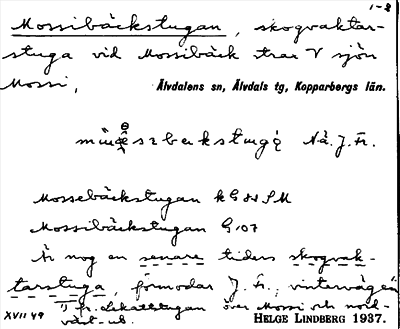 1-2
Mossibäckstugan, skogvaktar-
stuga vid Mossibäck trax V sjön
Mossi,
Älvdalens sn, Älvdals tg, Kopparbergs län.
Nå. J. Fr.
Mossebäckstugan k G 88 S M
Mossibäckstugan G 07
Är nog en senare tiders skogvak-
tarstuga, förmodar J. Fr.; vintervägen
fr. Lekattstugan över Mossi och nord-
XVII 49
HELGE LINDBERG 1937.